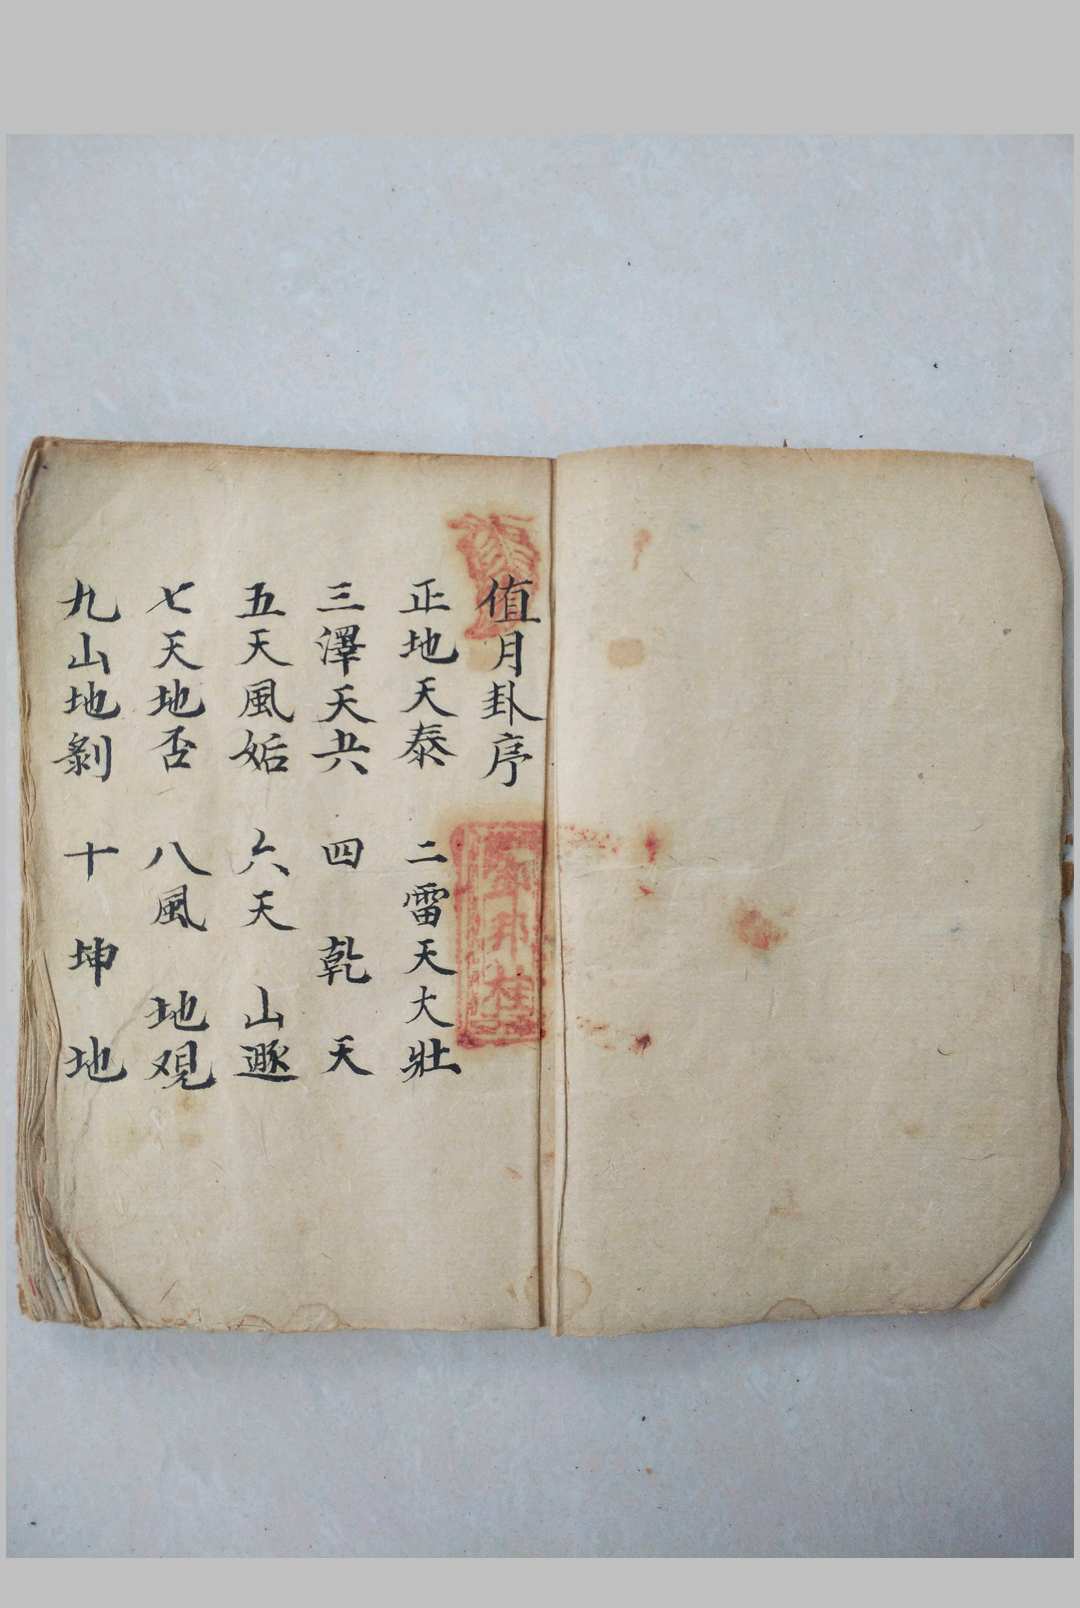 值月卦序
正地天泰 二雷天大壯
三澤天夬 四乾天
五天風姤 六天山遯
七天地否 八風地覌
九山地剝 十坤地